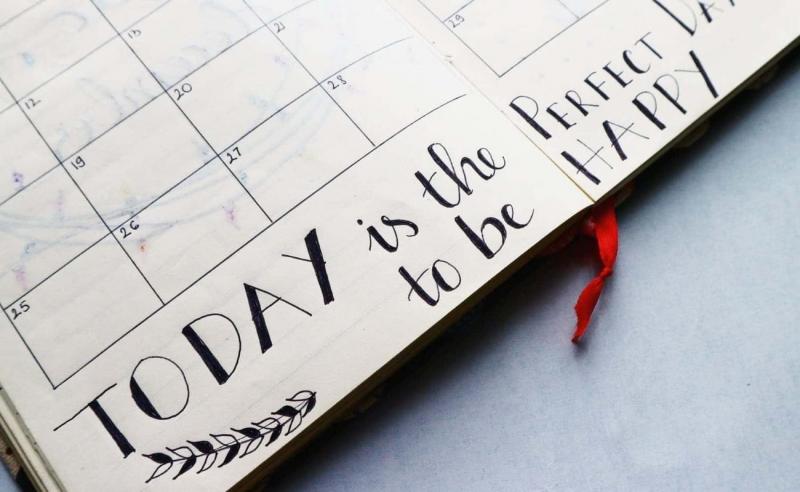 13
21
12
20
28
19
27
26
25
TODAY is the
to be
29
PERFECT DAY
HAPPY